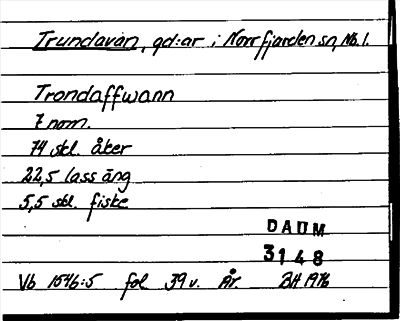 Trundavan, gd:ar i Norrfjärden sn, Nb.l.
Trondaffwann
7 nom.
74 skl. åker
22,5 lass äng
5,5 skl. fiske
DAUM
3148
Vb 1546:5 fol 39 v. År. BH 1976